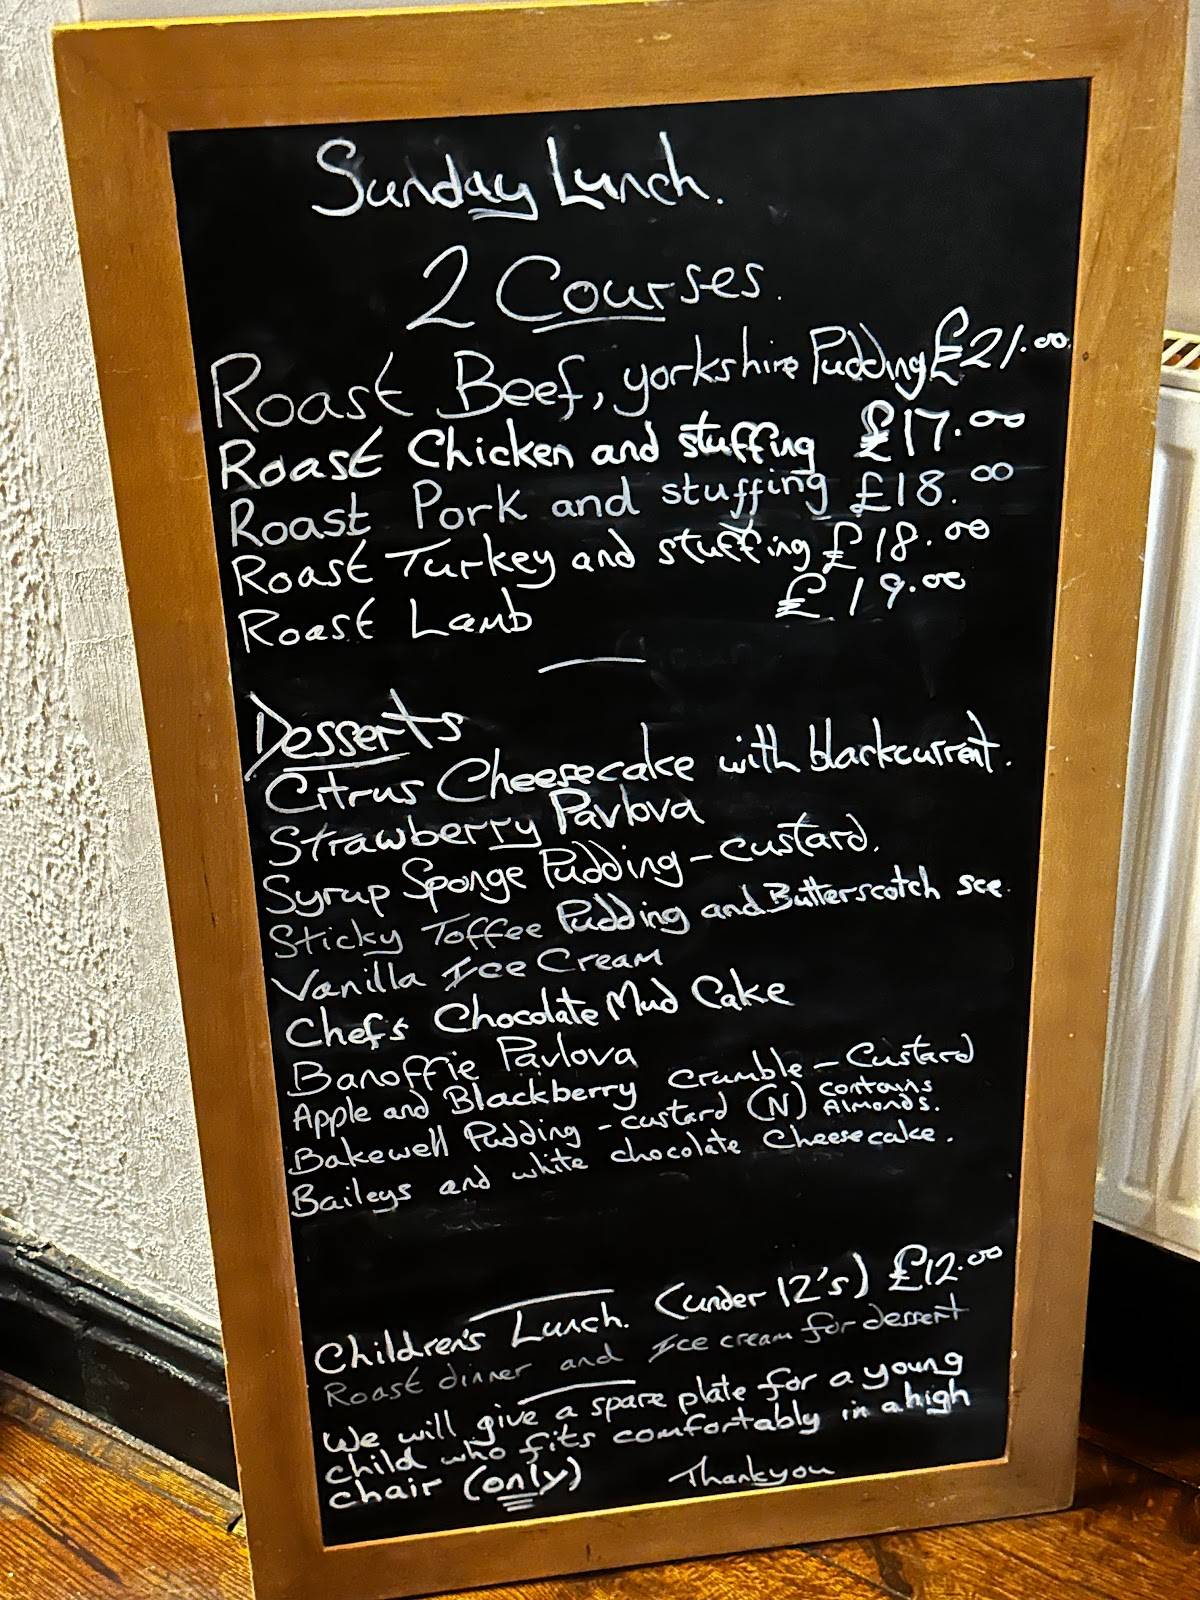 Sunday Lunch.
2 Courses.
Roast Beef, yorkshire Pudding £21.00.
Roast Chicken and stuffing £17.00
Roast Pork and stuffing £18.00
Roast Turkey and stuffing £18.00
Roast Lamb £19.00
Desserts
Citrus Cheesecake with blackcurrent.
Strawberry Pavlova
Syrup Sponge Pudding - custard.
Sticky Toffee Pudding and Butterscotch sce.
Vanilla Ice Cream
Chefs Chocolate Mud Cake
Banoffie Pavlova
Apple and Blackberry Crumble - Custard
Bakewell Pudding - custard (N) contains Almonds.
Baileys and white chocolate Cheesecake.
Children's Lunch. (under 12's) £12.00
Roast dinner and Ice cream for dessert
We will give a spare plate for a young
child who fits comfortably in a high
chair (only) Thankyou